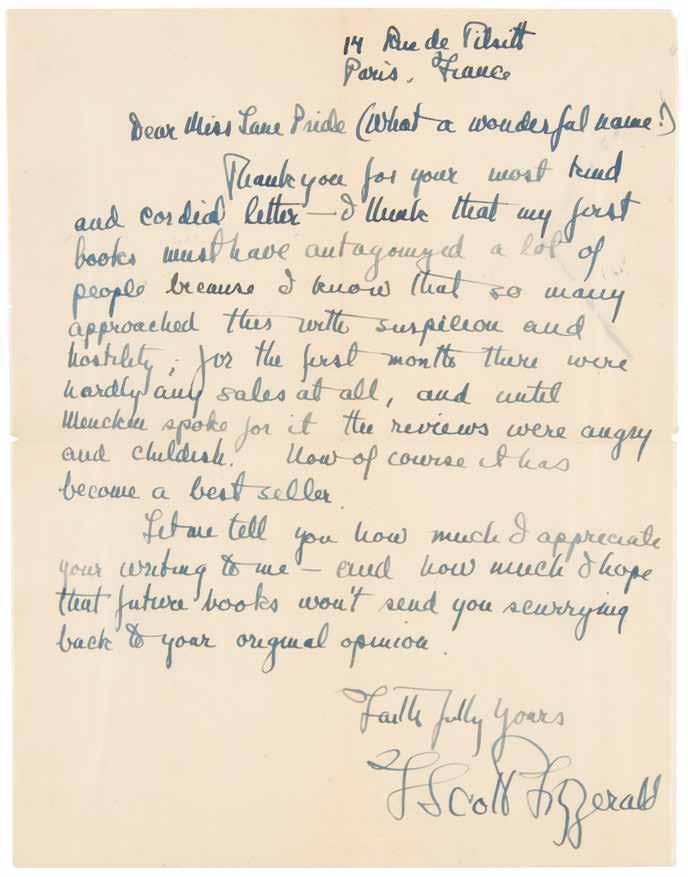 14 Rue de Tilsitt
Paris, France
Dear Miss Lane Pride (What a wonderful name!)
Thank you for your most kind
and cordial letter — I think that my first
books must have antagonized a lot of
people because I know that so many
approached this with suspicion and
hostility; for the first months there were
hardly any sales at all, and until
Mencken spoke for it the reviews were angry
and childish. Now of course it has
become a best seller.
Let me tell you how much I appreciate
your writing to me — and how much I hope
that future books won't send you scurrying
back to your original opinion.
Faithfully Yours
F Scott Fitzgerald